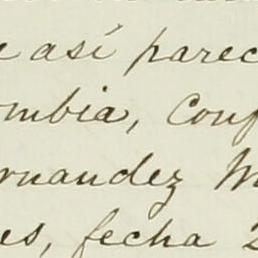 e así parec
ombia, Conf
ernandez M
es, fecha 2